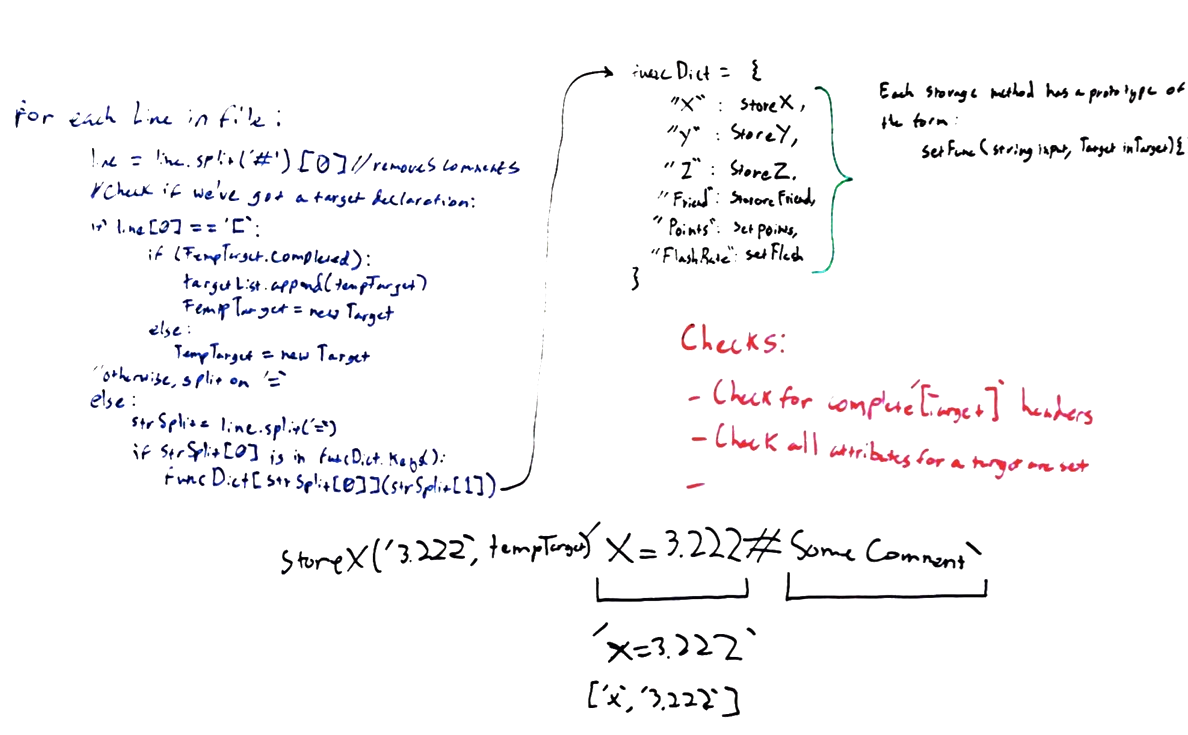 For each Line in file:
line = line.split('#')[0] //removes comments
//Check if we've got a target declaration:
if line[0] == '[':
if (TempTarget.completed):
targetList.append(tempTarget)
TempTarget = new Target
else:
TempTarget = new Target
"otherwise, split on '='
else:
strSplit = line.split('=')
if strSplit[0] is in funcDict.Keys():
FuncDict[strSplit[0]](strSplit[1])
funcDict = {
"X" : StoreX,
"Y" : StoreY,
"Z" : StoreZ,
"Friend": StoreFriend,
"Points": Setpoints,
"FlashRate": setFlash
}
Each storage method has a prototype of
the form:
setFunc(string input, Target inTarget){
Checks:
- Check for complete '[Target]' headers
- Check all attributes for a target are set
-
StoreX('3.222', tempTarget) 'X=3.222# Some Comment'
'X=3.222'
['X', '3.222']